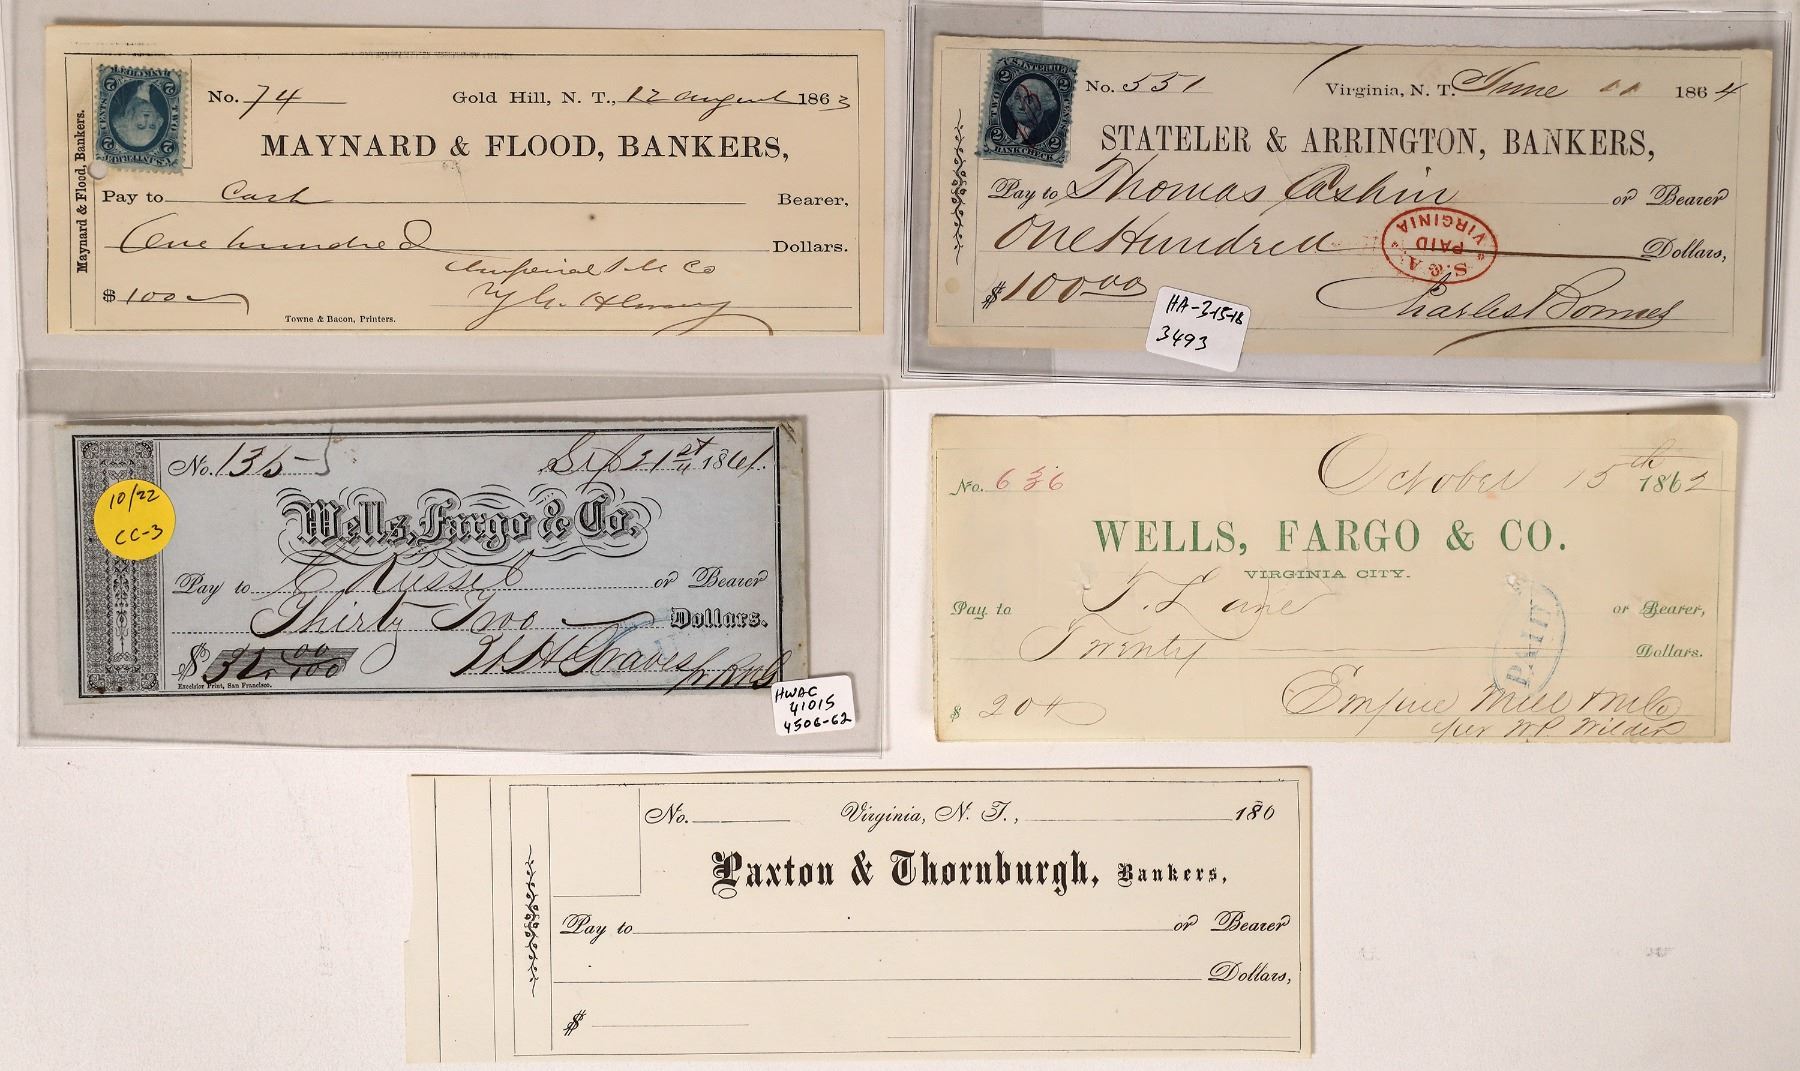 No. 74 Gold Hill, N. T., 12 August 1863
MAYNARD & FLOOD, BANKERS,
Pay to Cash Bearer,
One hundred Dollars.
Imperial S M Co
$ 100
Towne & Bacon, Printers.
Maynard & Flood, Bankers.
2 CENTS TWO 2
U.S. INTER. REV.
2 TWO CENTS 2
BANK CHECK
No. 551 Virginia, N. T. June 11 1864
STATELER & ARRINGTON, BANKERS,
Pay to Thomas Cashin or Bearer
One Hundred Dollars,
S. & A.
PAID
VIRGINIA
$ 100 00
Charles Bonner
HA-3-15-18
3493
No. 135 Sep 21st 1861.
10/22
CC-3
Wells, Fargo & Co.
Pay to C Russel or Bearer
Thirty Two Dollars.
$ 32.00/100 W H Graves
Excelsior Print, San Francisco.
HWAC
41015
4506-62
October 15th
No. 636 1862
WELLS, FARGO & CO.
VIRGINIA CITY.
Pay to T. Lane or Bearer,
Twenty Dollars.
PAID
$ 20 Empire Mill & M Co
per W. P. Wilder
No. Virginia, N. T., 186
Paxton & Thornburgh, Bankers,
Pay to or Bearer
Dollars,
$